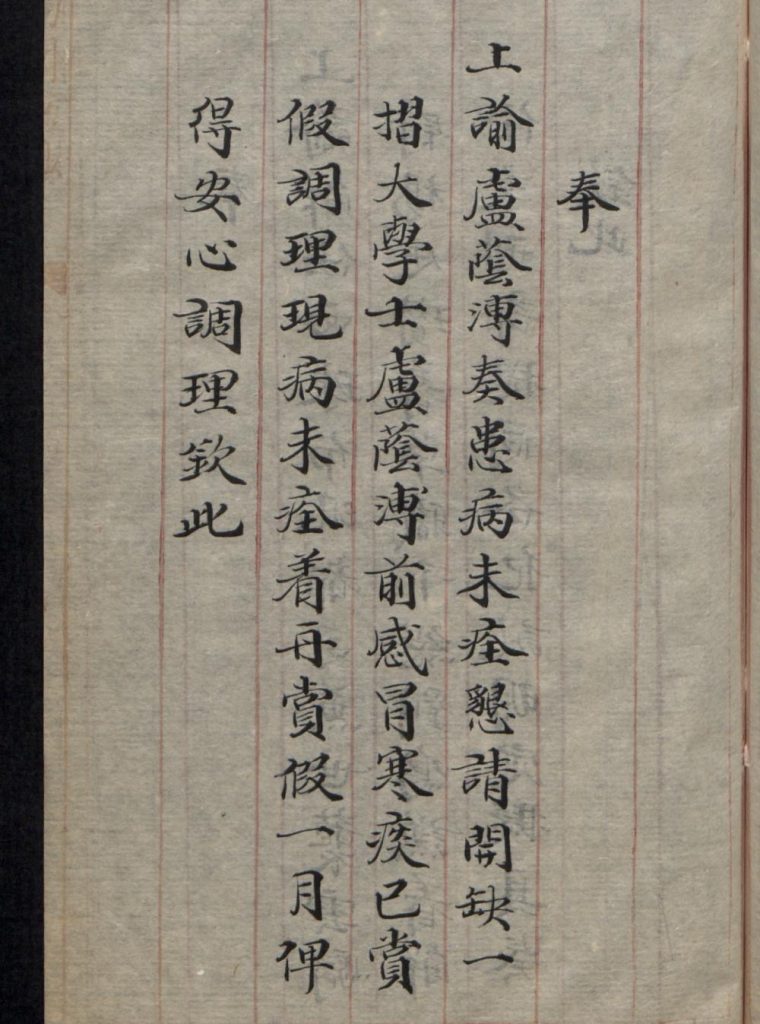 奉
上諭盧蔭溥奏患病未痊懇請開缺一
摺大學士盧蔭溥前感冒寒痰已賞
假調理現病未痊着再賞假一月俾
得安心調理欽此